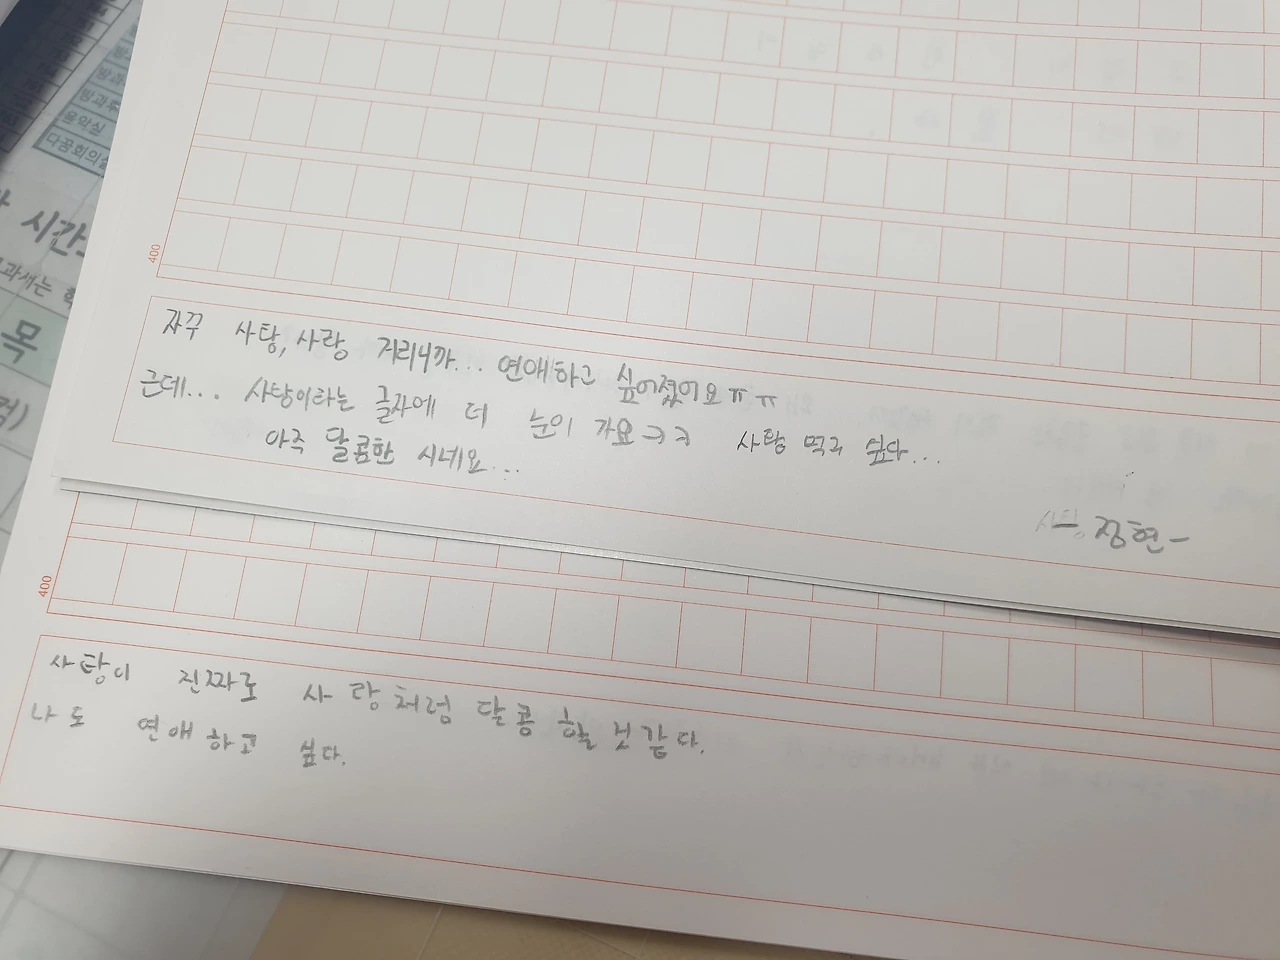 방과후
음악실
다꿈회의실
시간
과세는
목
400
자꾸 사탕, 사랑 거리니까... 연애하고 싶어졌어요ㅠㅠ
근데... 사탕이라는 글자에 더 눈이 가요ㅋㅋ 사탕 먹고 싶다...
아주 달콤한 시네요...
장현-
400
사탕이 진짜로 사랑처럼 달콩할 것 같다.
나도 연애하고 싶다.